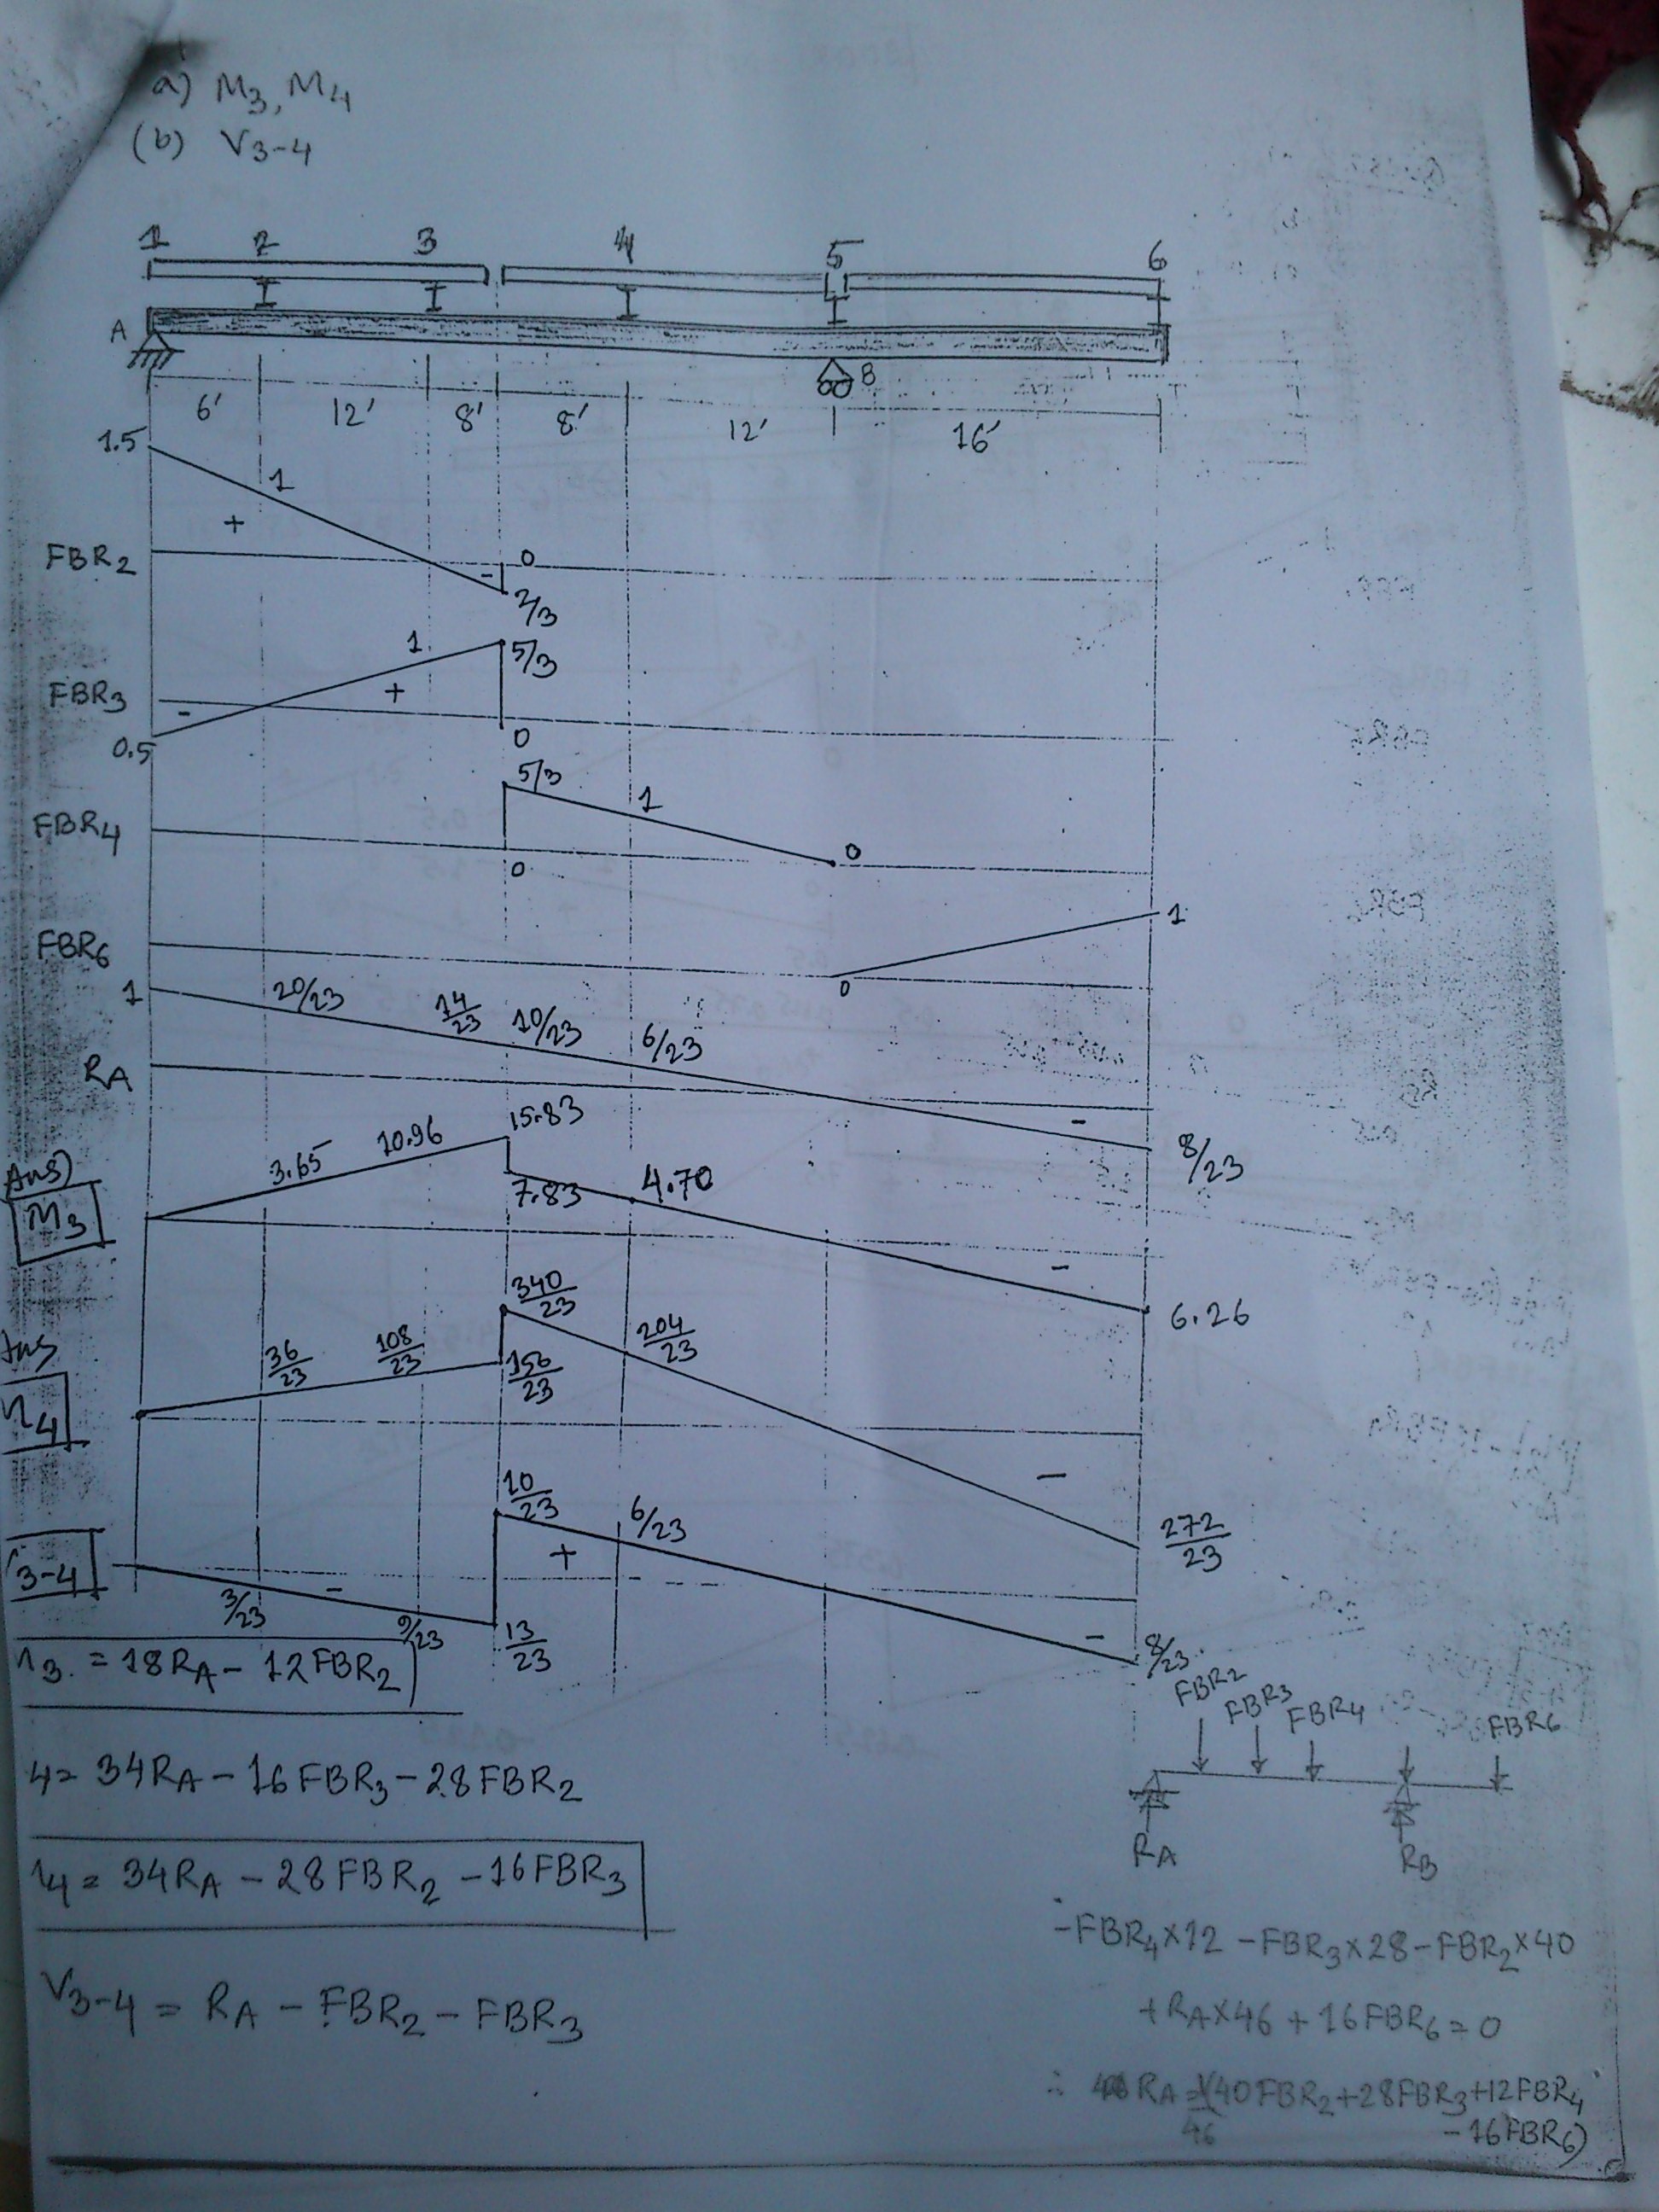 a) M3, M4
(b) V3-4
1 2 3 4 5 6
A
B
6' 12' 8' 8' 12' 16'
1.5
1
+
FBR2
-
0
2/3
1
5/3
FBR3
-
+
0.5
0
5/3
1
FBR4
0
0
1
FBR6
0
1
20/23
14/23
10/23
6/23
RA
-
8/23
Ans)
M3
3.65
10.96
15.83
7.83
4.70
-
6.26
Ans
4
36/23
108/23
340/23
156/23
204/23
-
272/23
3-4
10/23
6/23
+
-
3/23
9/23
13/23
-
8/23
3 = 18RA - 12FBR2
4 = 34RA - 16FBR3 - 28FBR2
4 = 34RA - 28FBR2 - 16FBR3
V3-4 = RA - FBR2 - FBR3
FBR2
FBR3
FBR4
FBR6
RA
RB
-FBR4×12 -FBR3×28-FBR2×40
+RA×46 + 16FBR6 = 0
∴ RA = (40FBR2+28FBR3+12FBR4
46
- 16FBR6)